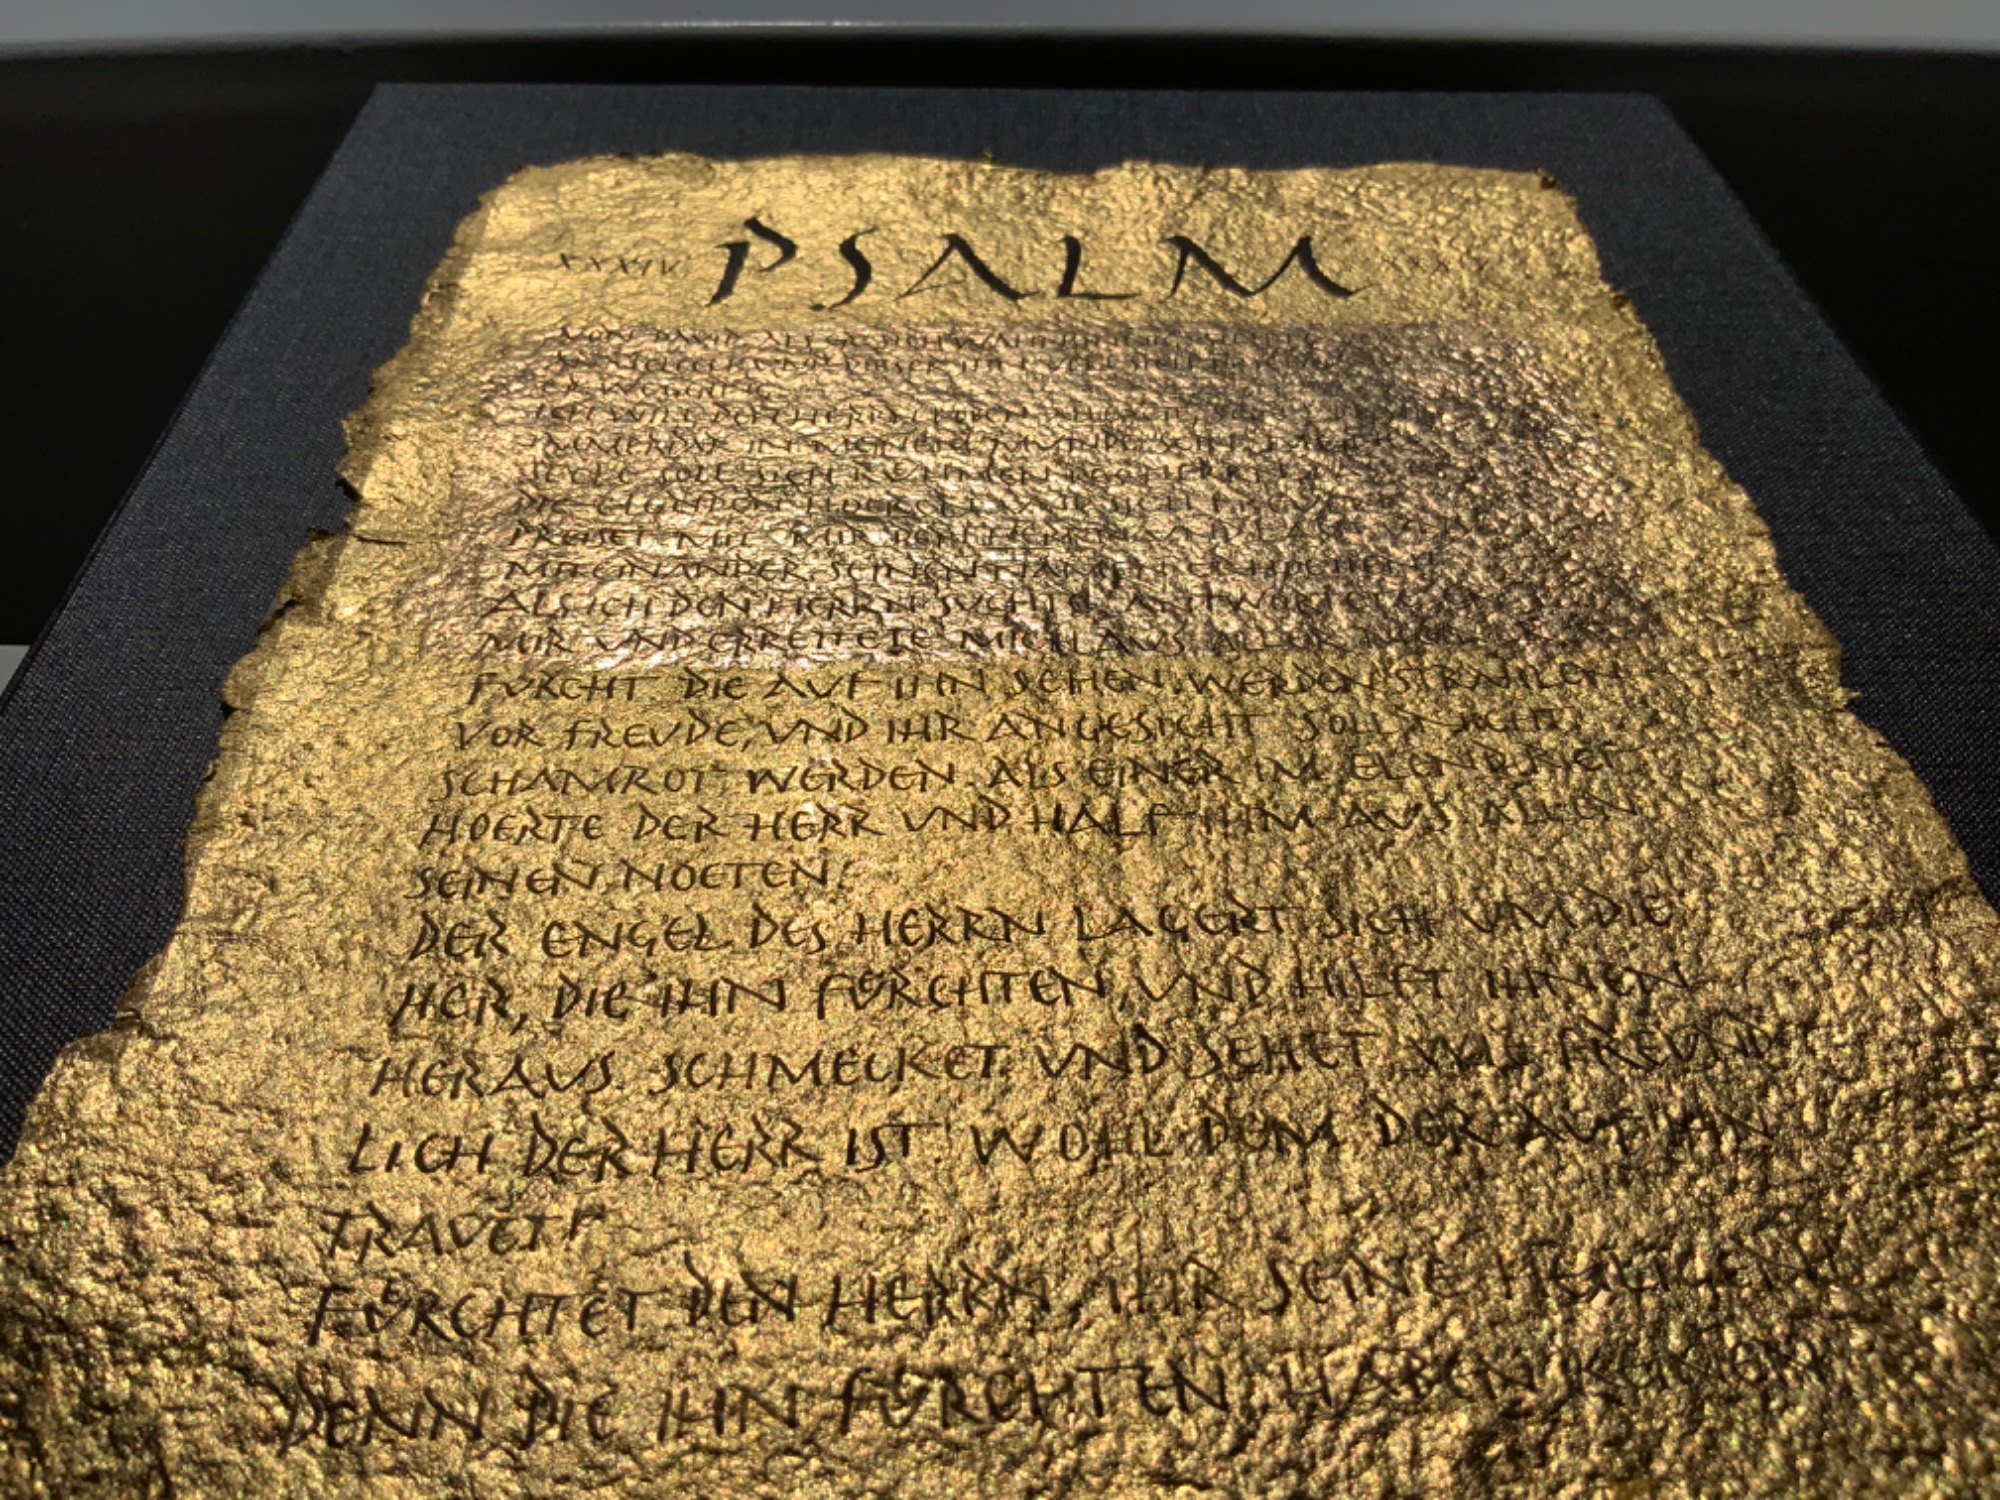 XXXIV PSALM
VON DAVID ALS ER SICH
ES WEGGING
ICH WILL DEN HERRN LOBEN ALLEZEIT, SEIN
IMMERDAR IN MEINEM MUNDE SEIN. MEINE
SEELE SOLL SICH RUEHMEN DES HERRN
PREISET MIT MIR DEN HERRN UND LASST
MITEINANDER SEINEN NAMEN ERHOEHEN!
ALS ICH DEN HERRN SUCHTE, ANTWORTETE ER
MIR UND ERRETTETE MICH AUS ALLER
FURCHT DIE AUF IHN SEHEN, WERDEN STRAHLEN
VOR FREUDE, UND IHR ANGESICHT SOLL NICHT
SCHAMROT WERDEN. ALS EINER IM ELEND RIEF,
HOERTE DER HERR UND HALF IHM AUS ALLEN
SEINEN NOETEN.
DER ENGEL DES HERRN LAGERT SICH UM DIE
HER, DIE IHN FÜRCHTEN, UND HILFT IHNEN
HERAUS. SCHMECKET UND SEHET WIE FREUND
LICH DER HERR IST. WOHL DEM DER AUF IHN
TRAUET!
FÜRCHTET DEN HERRN, IHR SEINE HEILIGEN
DENN DIE IHN FÜRCHTEN, HABEN KEINEN